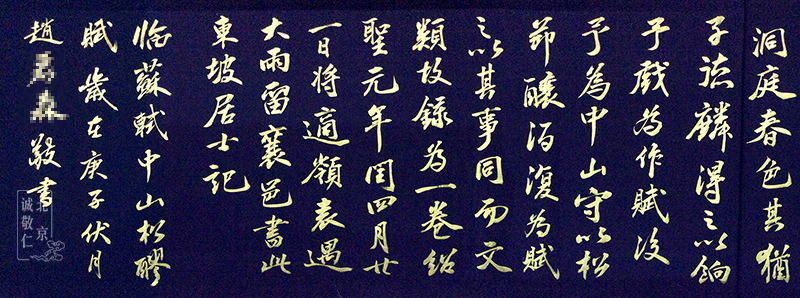 洞庭春色其猶
子德麟得之以餉
予戲為作賦後
予為中山守以松
節釀酒復為賦
之以其事同而文
類故錄為一卷紹
聖元年閏四月廿
一日將適嶺表遇
大雨留襄邑書此
東坡居士記
臨蘇軾中山松醪
賦歲在庚子伏月
趙 敬書
北京
誠敬仁